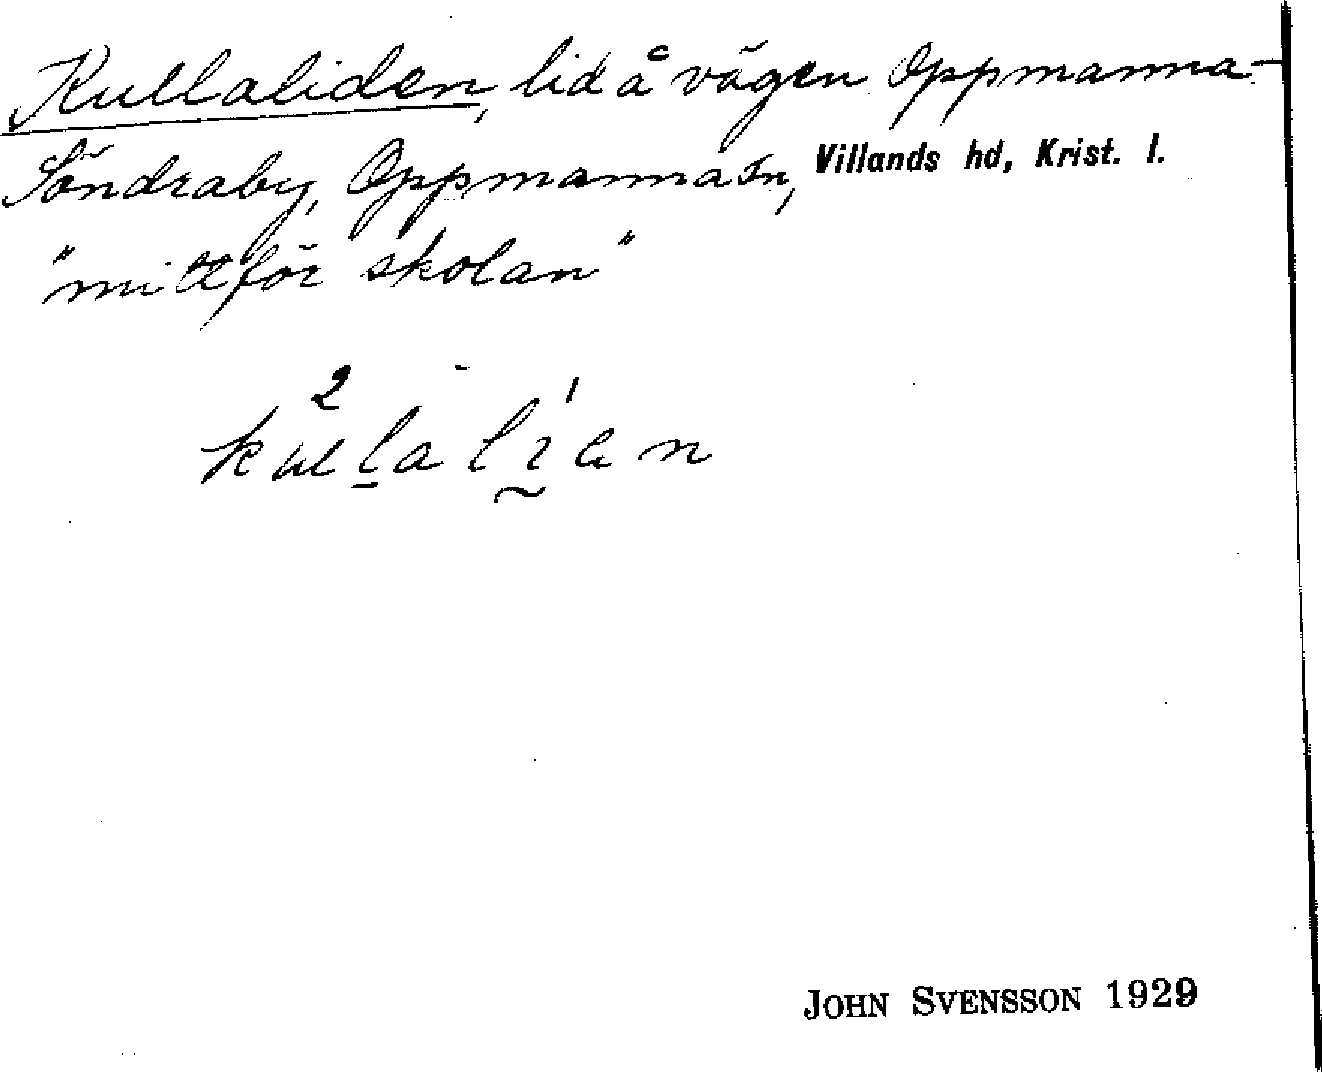 Kullaliden, lid å vägen Oppmanna-
Söndraby, Oppmanna sn, Villands hd, Krist. l.
"mitt för skolan"
JOHN SVENSSON 1929